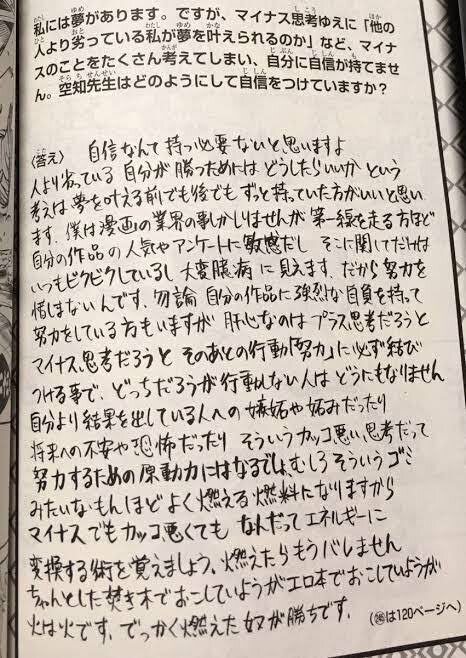 私には夢があります。ですが、マイナス思考ゆえに「他の
人より劣っている私が夢を叶えられるのか」など、マイナ
スのことをたくさん考えてしまい、自分に自信が持てませ
ん。空知先生はどのようにして自信をつけていますか？
〈答え〉 自信なんて持つ必要ないと思いますよ
人より劣っている自分が勝つためにはどうしたらいいかという
考えは夢を叶える前でも後でもずっと持っていた方がいいと思い
ます。僕は漫画の業界の事しかしりませんが第一線を走る方ほど
自分の作品の人気やアンケートに敏感だし そこに関してだけは
いつもビクビクしているし 大変臆病に見えます。だから努力を
惜しまないんです。勿論 自分の作品に強烈な自負を持って
努力をしている方もいますが 肝心なのはプラス思考だろうと
マイナス思考だろうと そのあとの行動「努力」に必ず結び
つける事で、どっちだろうが行動しない人はどうにもなりません
自分より結果を出している人への嫉妬や妬みだったり
将来への不安や恐怖だったり そういうカッコ悪い思考だって
努力するための原動力にはなるでしょ むしろそういうゴミ
みたいなもんほどよく燃える燃料になりますから
マイナスでもカッコ悪くても なんだってエネルギーに
変換する術を覚えましょう、燃えたらもうバレません
ちゃんとした焚き木でおこしていようがエロ本でおこしていようが
火は火です。でっかく燃えた奴が勝ちです。
は120ページへ)